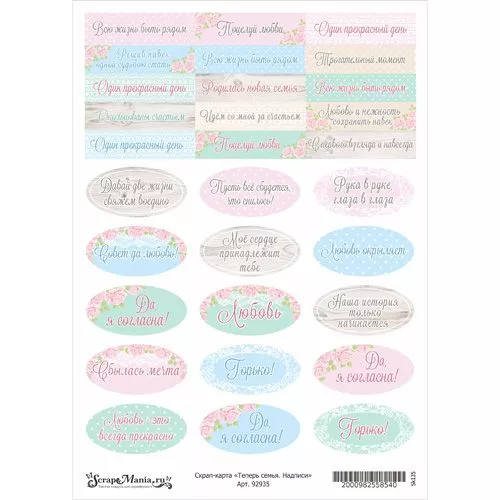 Всю жизнь быть рядом
Поцелуй любви
Один прекрасный день
Решив навек
одной судьбою стать
Всю жизнь быть рядом
Трогательный момент
Один прекрасный день
Родилась новая семья
Всю жизнь быть рядом
Околдованы счастьем
Идём со мной за счастьем
Любовь и нежность
сохранить навек
Один прекрасный день
Поцелуй любви
С первого взгляда и навсегда
Давай две жизни
свяжем воедино
Пусть всё сбудется,
что снилось!
Рука в руке,
глаза в глаза
Совет да любовь!
Моё сердце
принадлежит
тебе
Любовь окрыляет
Да,
я согласна!
Любовь
Наша история
только
начинается
Сбылась мечта
Горько!
Да,
я согласна!
Любовь - это
всегда прекрасно
Да,
я согласна!
Горько!
ScrapMania.ru
Скрап-карта «Теперь семья. Надписи»
Арт. 92935
2000982558540